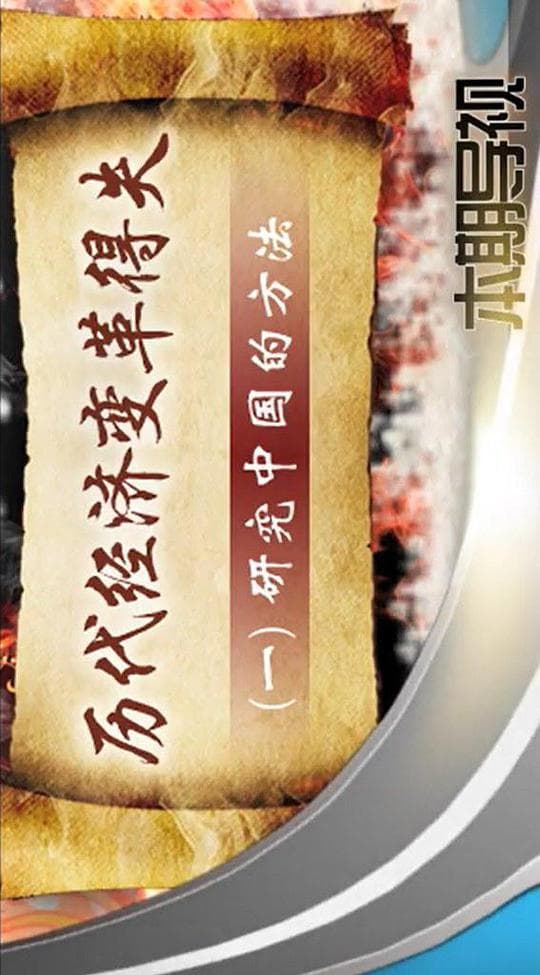 历代经济变革得失
(一)研究中国的方法
本期导视